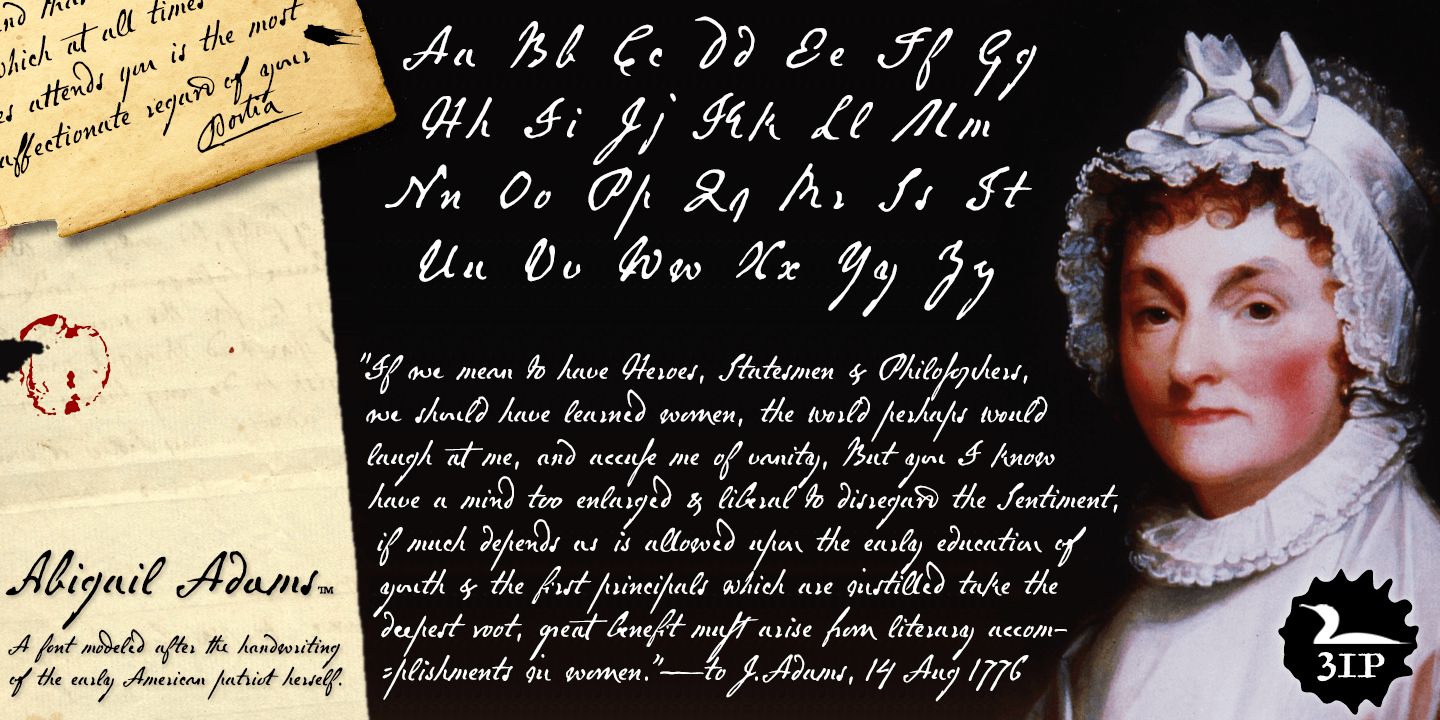 nd that
which at all times
es attends you is the most
affectionate regard of your
Portia
Aa Bb Cc Dd Ee Ff Gg
Hh Ii Jj Kk Ll Mm
Nn Oo Pp Qq Rr Ss Tt
Uu Vv Ww Xx Yy Zz
"If we mean to have Heroes, Statesmen & Philoſophers,
we should have learned women, the world perhaps would
laugh at me, and accuſe me of vanity, But you I know
have a mind too enlarged & liberal to disregard the Sentiment,
if much depends as is allowed upon the early education of
youth & the first principals which are instilled take the
deepest root, great benefit muſt arise from literary accom-
=plishments in women."—to J. Adams, 14 Aug 1776
Abigail Adams™
A font modeled after the handwriting
of the early American patriot herself.
3IP